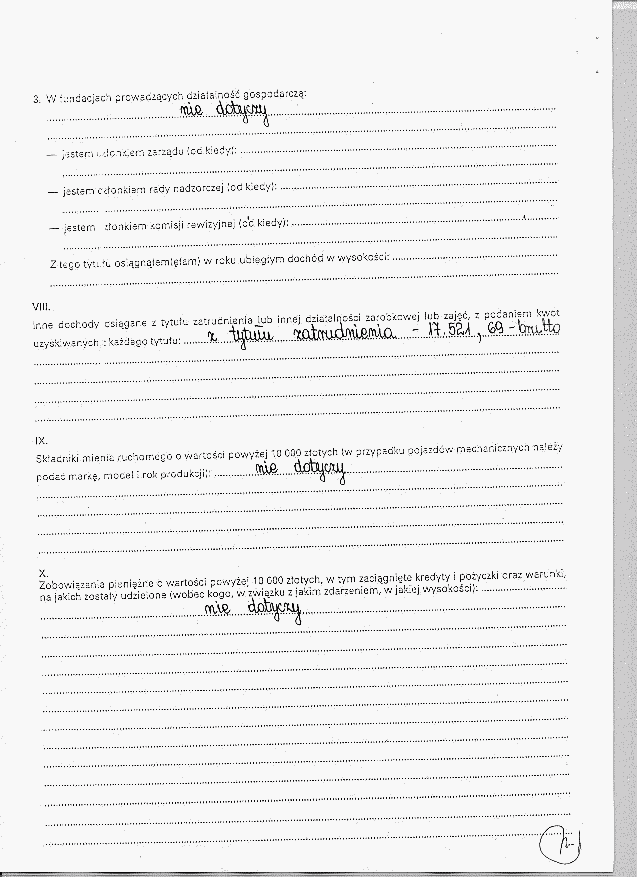 3. W fundacjach prowadzących działalność gospodarczą:
nie dotyczy
— jestem członkiem zarządu (od kiedy):
— jestem członkiem rady nadzorczej (od kiedy):
— jestem członkiem komisji rewizyjnej (od kiedy):
Z tego tytułu osiągnąłem(ęłam) w roku ubiegłym dochód w wysokości:
VIII.
Inne dochody osiągane z tytułu zatrudnienia lub innej działalności zarobkowej lub zajęć, z podaniem kwot
uzyskiwanych z każdego tytułu: z tytułu zatrudnienia - 17.521,69 - brutto
IX.
Składniki mienia ruchomego o wartości powyżej 10 000 złotych (w przypadku pojazdów mechanicznych należy
podać markę, model i rok produkcji): nie dotyczy
X.
Zobowiązania pieniężne o wartości powyżej 10 000 złotych, w tym zaciągnięte kredyty i pożyczki oraz warunki,
na jakich zostały udzielone (wobec kogo, w związku z jakim zdarzeniem, w jakiej wysokości):
nie dotyczy